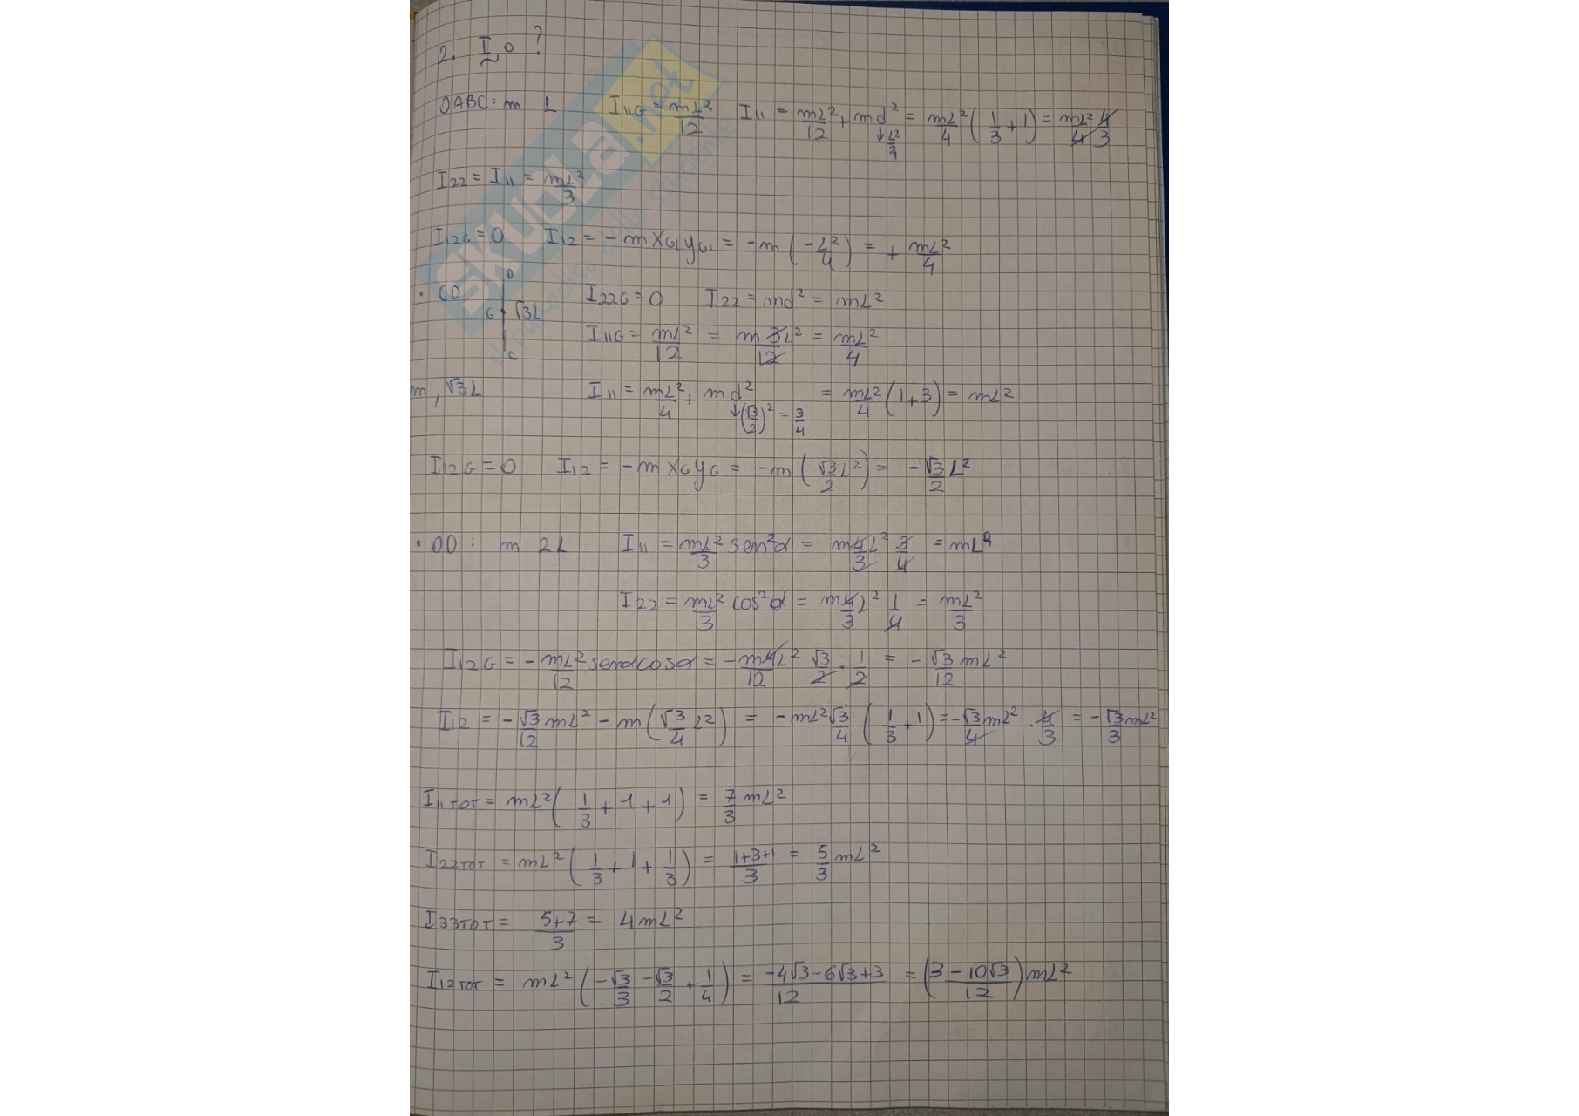 2. I₀ ?
OABC: m L I₁₁G = mL²/12 I₁₁ = mL²/12 + md² = mL²/4 (1/3 + 1) = mL²/4 4/3
↓ L²/4
I₂₂ = I₁₁ = mL²/3
I₁₂G = 0 I₁₂ = -m xG yG = -m (-L²/4) = + mL²/4
• CD D I₂₂G = 0 I₂₂ = md² = mL²
G √3L
C I₁₁G = mL²/12 = m 3L²/12 = mL²/4
m, √3L I₁₁ = mL²/4 + md² = mL²/4 (1+3) = mL²
↓ (√3/2)² = 3/4
I₁₂G = 0 I₁₂ = -m xG yG = -m (√3L²/2) = -√3/2 L²
• OD: m 2L I₁₁ = mL²/3 sen²α = m4/3 L² 3/4 = mL²
I₂₂ = mL²/3 cos²α = m4/3 L² 1/4 = mL²/3
I₁₂G = - mL²/12 senαcosα = - m4L²/12 √3/2 · 1/2 = - √3/12 mL²
I₁₂ = - √3/12 mL² - m(√3/4 L²) = - mL² √3/4 (1/3 + 1) = - √3/4 mL² · 4/3 = - √3/3 mL²
I₁₁TOT = mL² (1/3 + 1 + 1) = 7/3 mL²
I₂₂TOT = mL² (1/3 + 1 + 1/3) = (1+3+1)/3 = 5/3 mL²
I₃₃TOT = (5+7)/3 = 4mL²
I₁₂TOT = mL² (-√3/3 - √3/2 + 1/4) = (-4√3 - 6√3 + 3)/12 = ((3 - 10√3)/12) mL²
SKUOLA.net